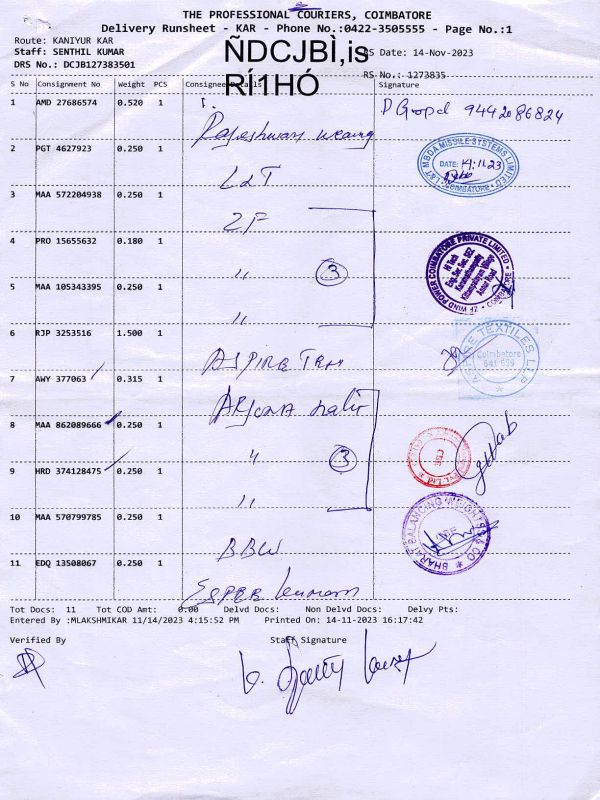 THE PROFESSIONAL COURIERS, COIMBATORE
Delivery Runsheet - KAR - Phone No.:0422-3505555 - Page No.:1
Route: KANIYUR KAR
Staff: SENTHIL KUMAR
RS Date: 14-Nov-2023
DRS No.: DCJB127383501
ÑDCJBÌ,is
RÍ1HÓ
RS No.: 1273835
S No Consignment No Weight PCS Consignee Details Signature
1 AMD 27686574 0.520 1 P Gopal 9442086824
2 PGT 4627923 0.250 1 L&T
L&T MBDA MISSILE SYSTEMS LIMITED
DATE: 14.11.23
COIMBATORE
3 MAA 572204938 0.250 1 ZF
4 PRO 15655632 0.180 1 " 3
ZF WIND POWER COIMBATORE PRIVATE LIMITED
Hi Tech
Eng. Sec. SEZ
Annur Road
COIMBATORE
5 MAA 105343395 0.250 1 "
6 RJP 3253516 1.500 1 ASPIRE TEX
TEXTILES LLP
Coimbatore
641 659
7 AWY 377063 0.315 1
8 MAA 862089666 0.250 1 " 3
9 HRD 374128475 0.250 1 "
10 MAA 570799785 0.250 1 BBW
BHARAT BALANCING WEIGHTSS & CO
11 EDQ 13508067 0.250 1
Tot Docs: 11 Tot COD Amt: 0.00 Delvd Docs: Non Delvd Docs: Delvy Pts:
Entered By :MLAKSHMIKAR 11/14/2023 4:15:52 PM Printed On: 14-11-2023 16:17:42
Verified By Staff Signature